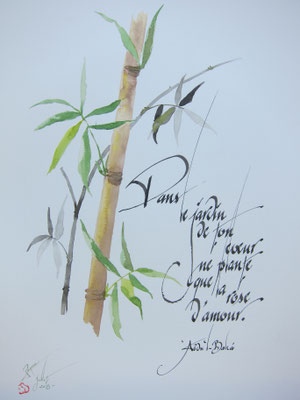 Dans
le jardin
de ton
coeur
ne plante
que la rose
d'amour.
'Abdu'l-Bahá